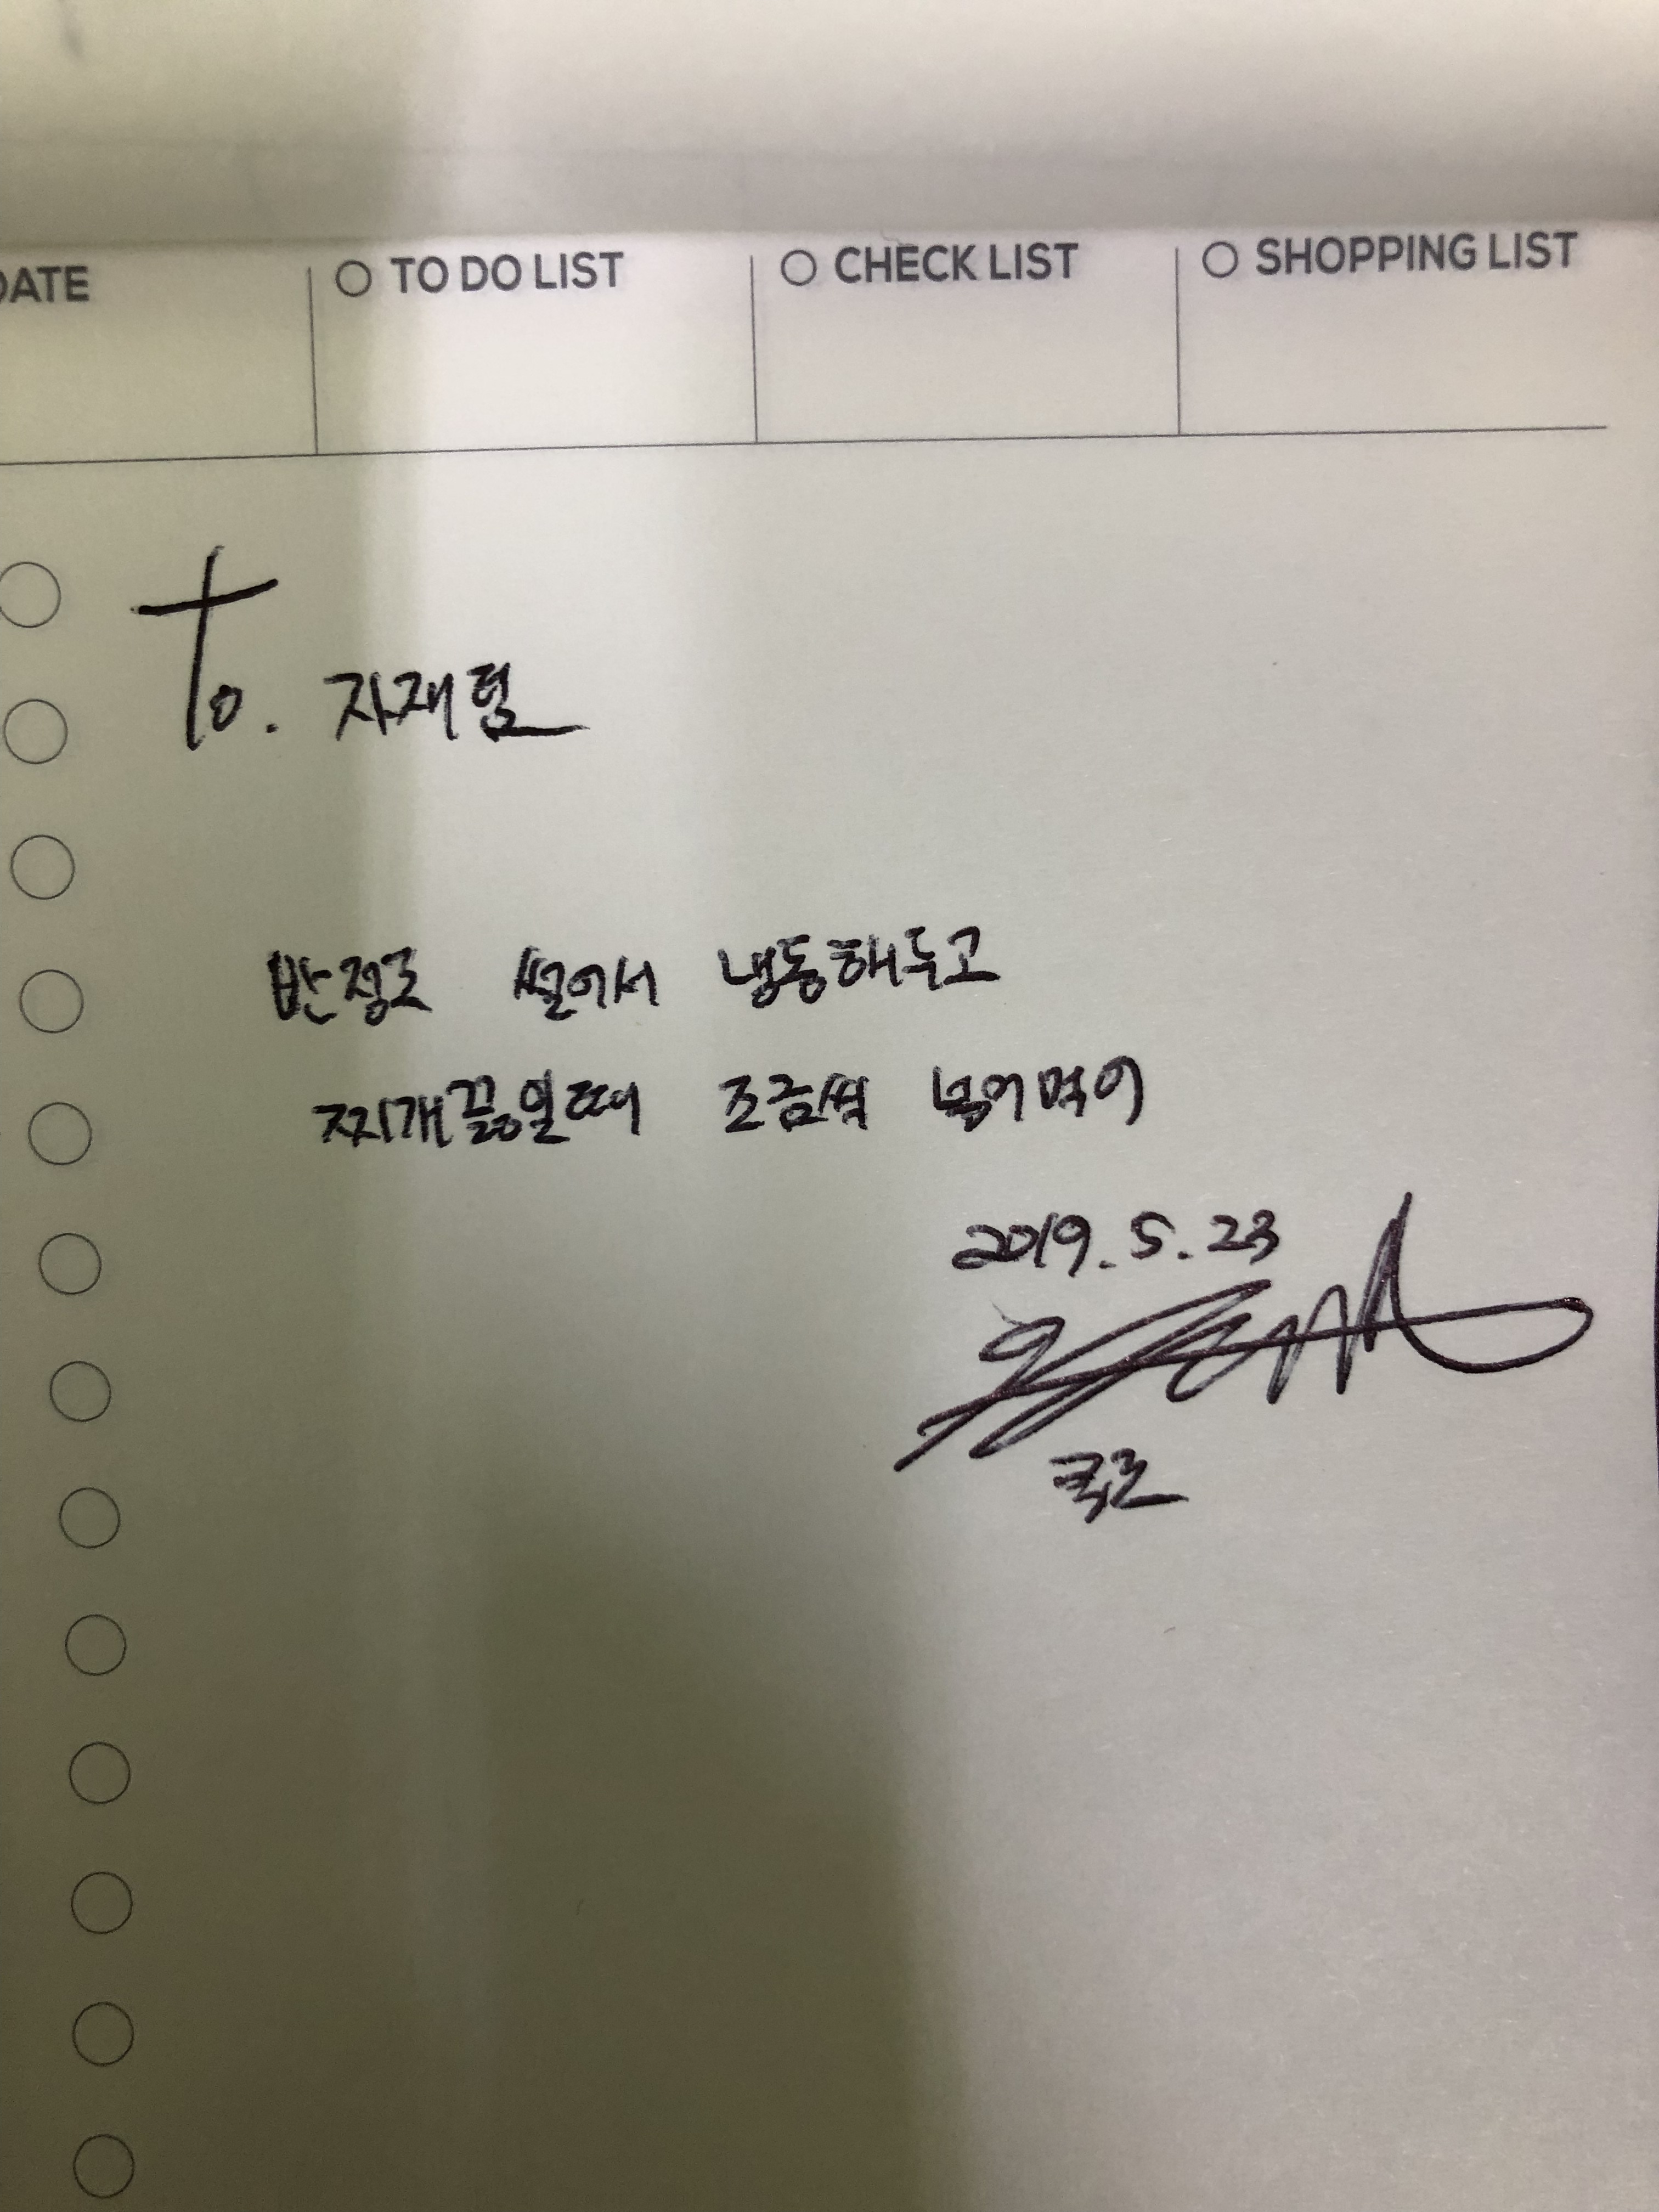 DATE TO DO LIST CHECK LIST SHOPPING LIST
To. 자재팀
반정도 썰어서 냉동해두고
찌개끓일때 조금씩 넣어먹어
2019. 5. 23